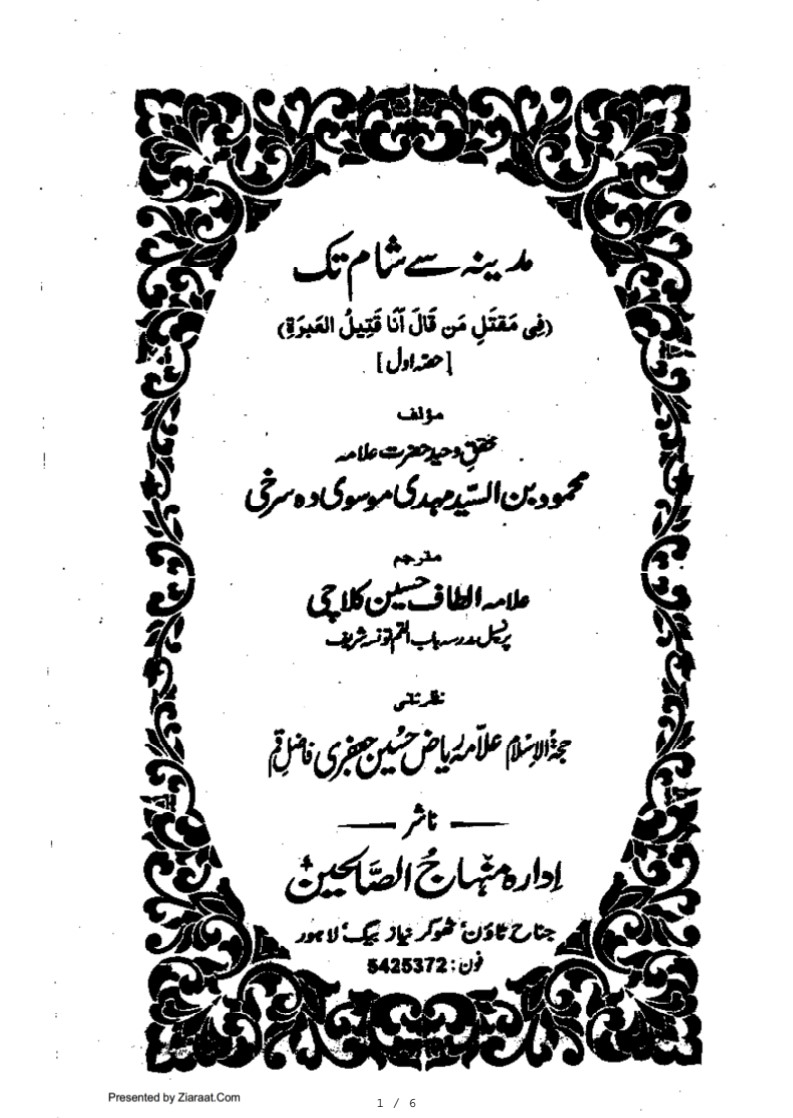 مدینہ سے شام تک
(فِی مَقتَلِ مَن قَالَ اَنَا قَتِیلُ العَبرَةِ)
[حصّہ اول]
مؤلف
محقق وحید حضرت علامہ
محمود بن السیّد مہدی موسوی دہ سرخی
مترجم
علامہ الطاف حسین کلاچی
پرنسپل مدرسہ باب القم تونسہ شریف
نظرثانی
حجۃ الاسلام علّامہ ریاض حسین جعفری فاضلِ قم
ناشر
ادارہ منہاج الصّالحین
جناح ٹاؤن ٹھوکر نیاز بیگ لاہور
فون: 5425372
Presented by Ziaraat.Com
1 / 6